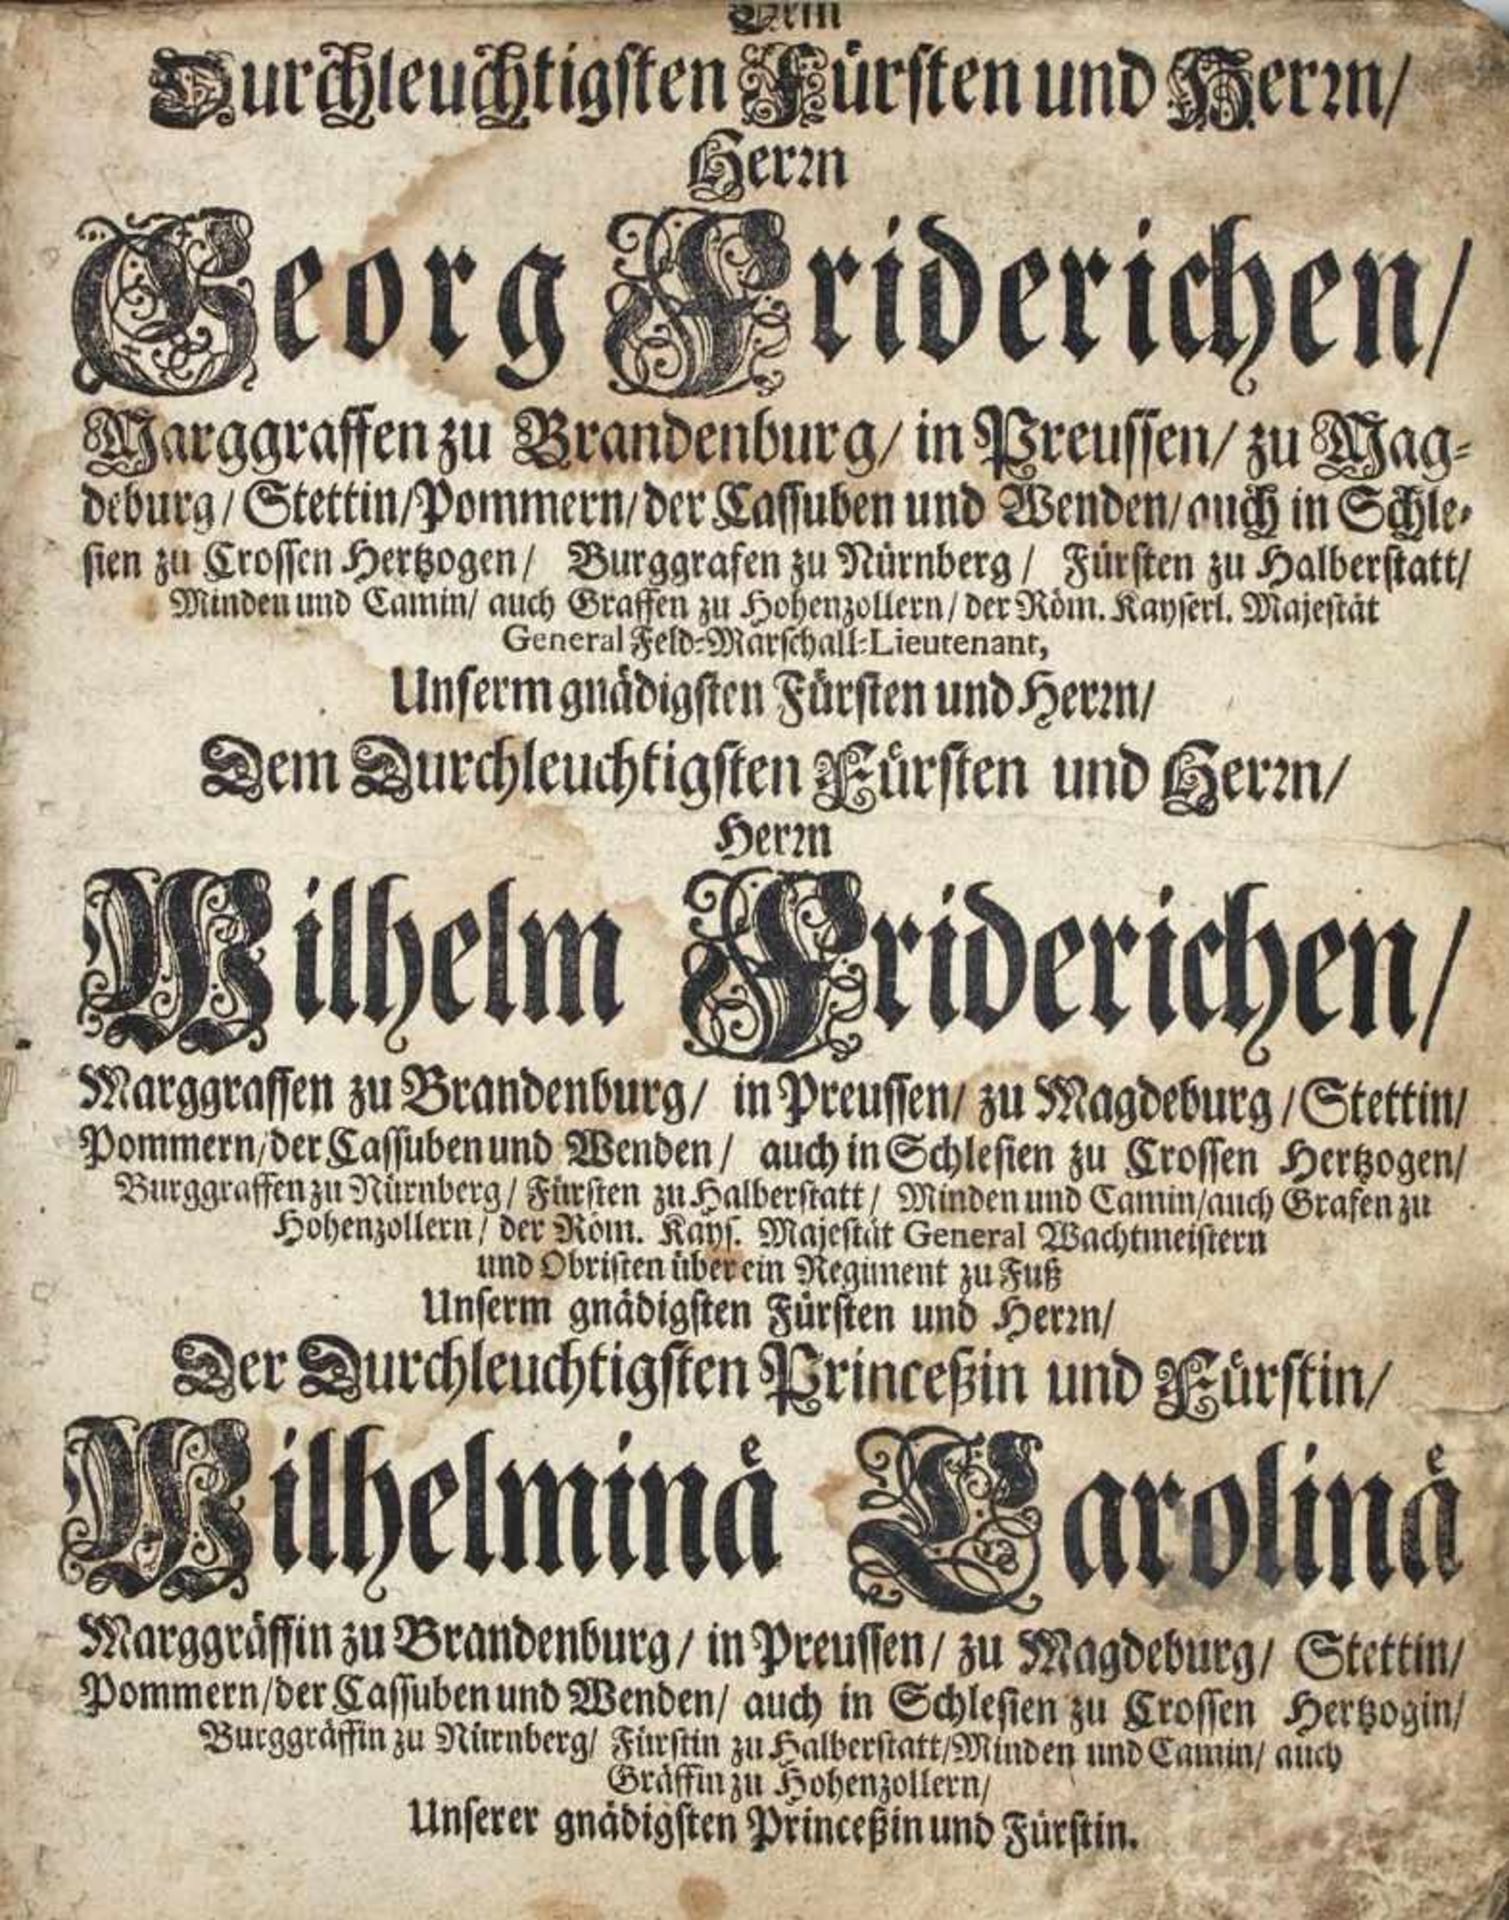 Dem
Durchleuchtigsten Fürsten und Herrn/
Herrn
Georg Friderichen/
Marggraffen zu Brandenburg/ in Preussen/ zu Mag-
deburg/ Stettin/ Pommern/ der Cassuben und Wenden/ auch in Schle-
sien zu Crossen Hertzogen/ Burggrafen zu Nürnberg/ Fürsten zu Halberstatt/
Minden und Camin/ auch Graffen zu Hohenzollern/ der Röm. Kayserl. Majestät
General Feld-Marschall-Lieutenant,
Unserm gnädigsten Fürsten und Herrn/
Dem Durchleuchtigsten Fürsten und Herrn/
Herrn
Wilhelm Friderichen/
Marggraffen zu Brandenburg/ in Preussen/ zu Magdeburg/ Stettin/
Pommern/ der Cassuben und Wenden/ auch in Schlesien zu Crossen Hertzogen/
Burggraffen zu Nürnberg/ Fürsten zu Halberstatt/ Minden und Camin/ auch Grafen zu
Hohenzollern/ der Röm. Kays. Majestät General Wachtmeistern
und Obristen über ein Regiment zu Fuß
Unserm gnädigsten Fürsten und Herrn/
Der Durchleuchtigsten Princeßin und Fürstin/
Wilhelminä Carolinä
Marggräffin zu Brandenburg/ in Preussen/ zu Magdeburg/ Stettin/
Pommern/ der Cassuben und Wenden/ auch in Schlesien zu Crossen Hertzogin/
Burggräffin zu Nürnberg/ Fürstin zu Halberstatt/ Minden und Camin/ auch
Gräffin zu Hohenzollern/
Unserer gnädigsten Princeßin und Fürstin.